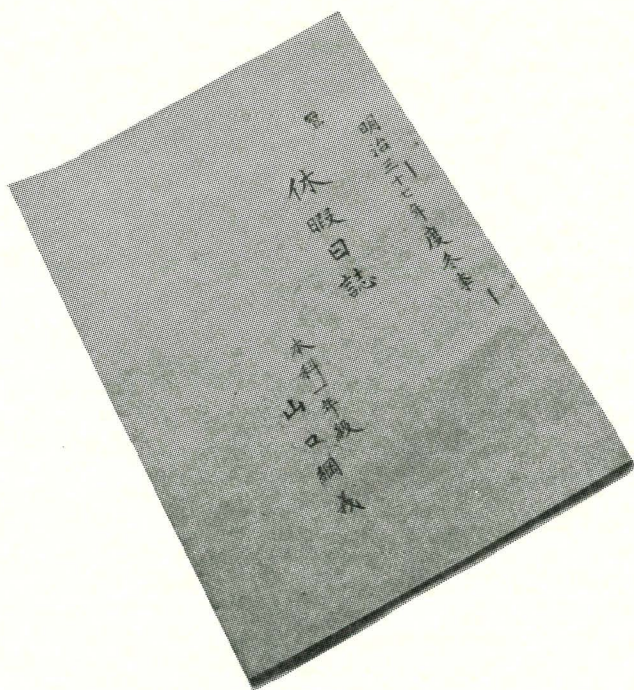 明治三十七年度冬季
休暇日誌
本科一年級
山口綱